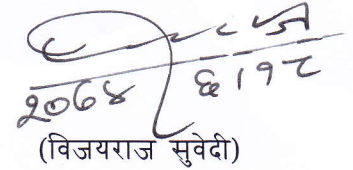 २०७४ ६।१८
(विजयराज सुवेदी)